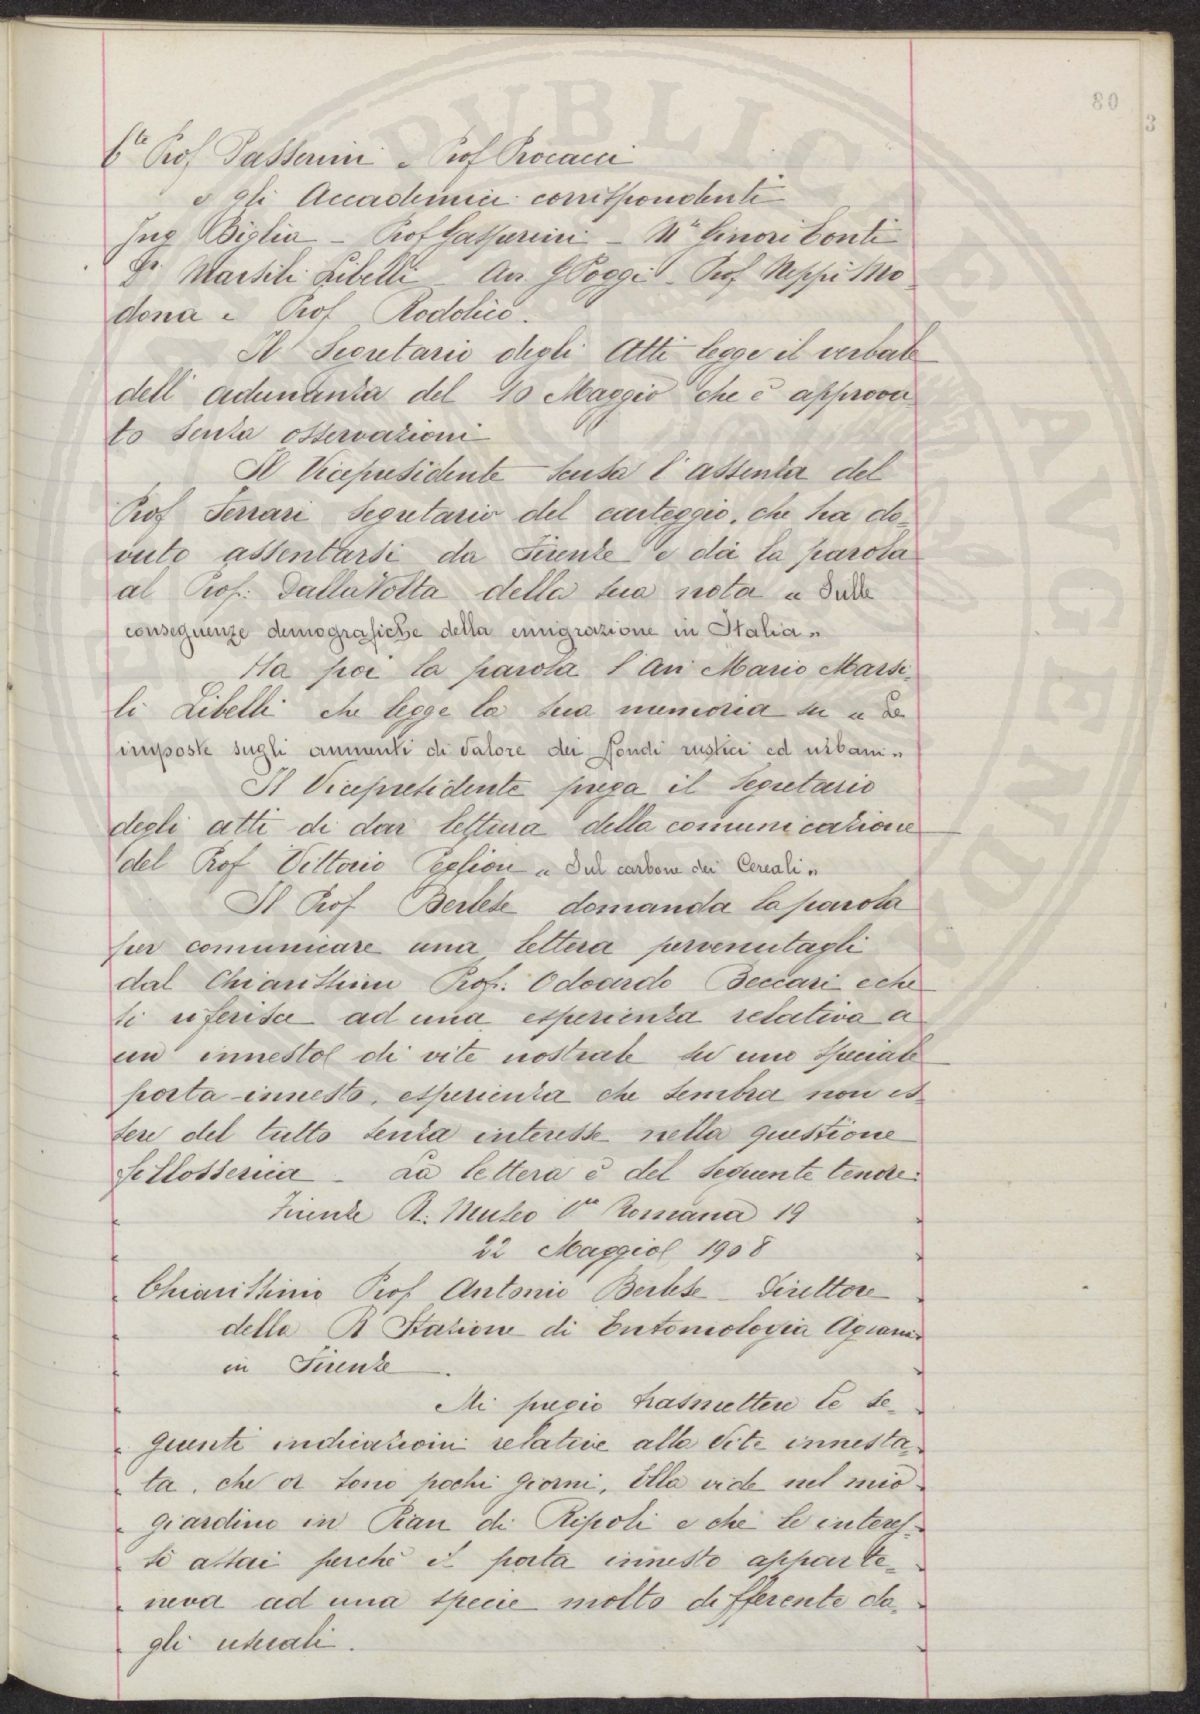 80
3
C.te Prof Passerini e Prof Procacci
e gli Accademici corrispondenti
Ing Biglia - Prof Gasperini - M.se Ginori Conti
Dr. Marsili Libelli - Avv. G Poggi - Prof Neppi Mo-
dona e Prof Rodolico.
Il Segretario degli Atti legge il verbale
dell'adunanza del 10 Maggio che è approva-
to senza osservazioni
Il Vicepresidente scusa l'assenza del
Prof Ferrari Segretario del carteggio, che ha do-
vuto assentarsi da Firenze e dà la parola
al Prof: Dalla Volta della sua nota « Sulle
conseguenze demografiche della emigrazione in Italia »
Ha poi la parola l'Avv Mario Marsi-
li Libelli che legge la sua memoria su « Le
imposte sugli aumenti di valore dei fondi rustici ed urbani »
Il Vicepresidente prega il Segretario
degli atti di dar lettura della comunicazione
del Prof Vittorio Peglion « Sul carbone dei Cereali »
Il Prof Berlese domanda la parola
per comunicare una lettera pervenutagli
dal Chiarissimo Prof: Odoardo Beccari e che
si riferisce ad una esperienza relativa a
un innesto di vite nostrale su uno speciale
porta-innesto, esperienza che sembra non es-
sere del tutto senza interesse nella questione
fillosserica - La lettera è del seguente tenore:
Firenze R: Museo V.ia Romana 19
22 Maggio 1908
Chiarissimo Prof Antonio Berlese - Direttore
della R Stazione di Entomologia Agraria
in Firenze.
Mi pregio trasmettere le se-
guenti indicazioni relative alla Vite innesta-
ta, che or sono pochi giorni, Ella vide nel mio
giardino in Pian di Ripoli e che le interes-
sò assai perchè il porta innesto apparte-
neva ad una specie molto differente da-
gli usuali.